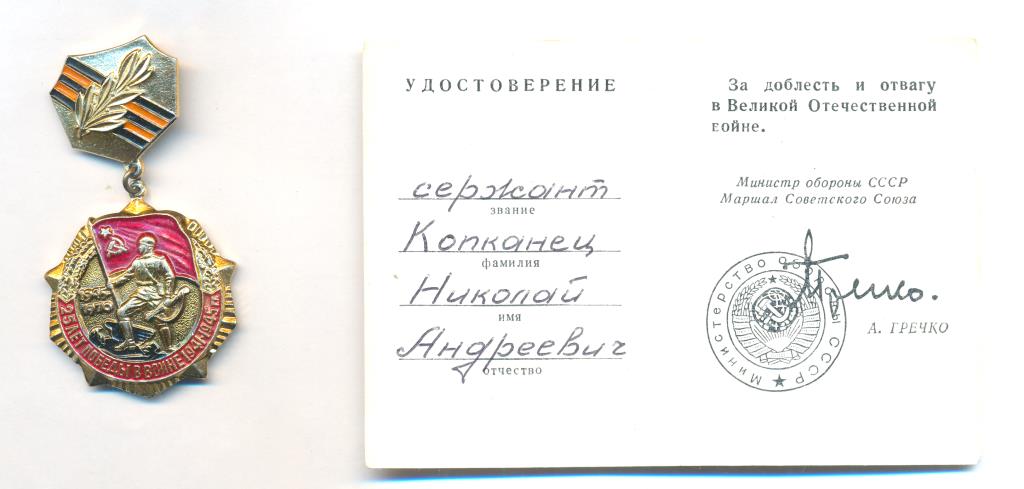 1945
1970
25 ЛЕТ ПОБЕДЫ В ВОЙНЕ 1941-1945 гг.
УДОСТОВЕРЕНИЕ
сержант
звание
Копканец
фамилия
Николай
имя
Андреевич
отчество
За доблесть и отвагу
в Великой Отечественной
войне.
Министр обороны СССР
Маршал Советского Союза
Министерство Обороны СССР
Гречко.
А. ГРЕЧКО